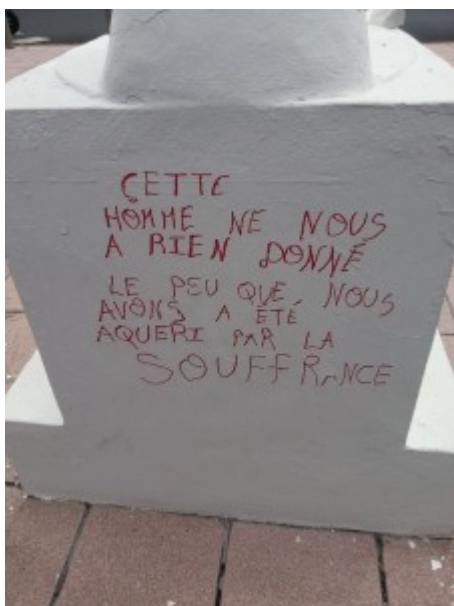 CETTE
HOMME NE NOUS
A RIEN DONNÉ
LE PEU QUE NOUS
AVONS A ÉTÉ
AQUERI PAR LA
SOUFFRANCE